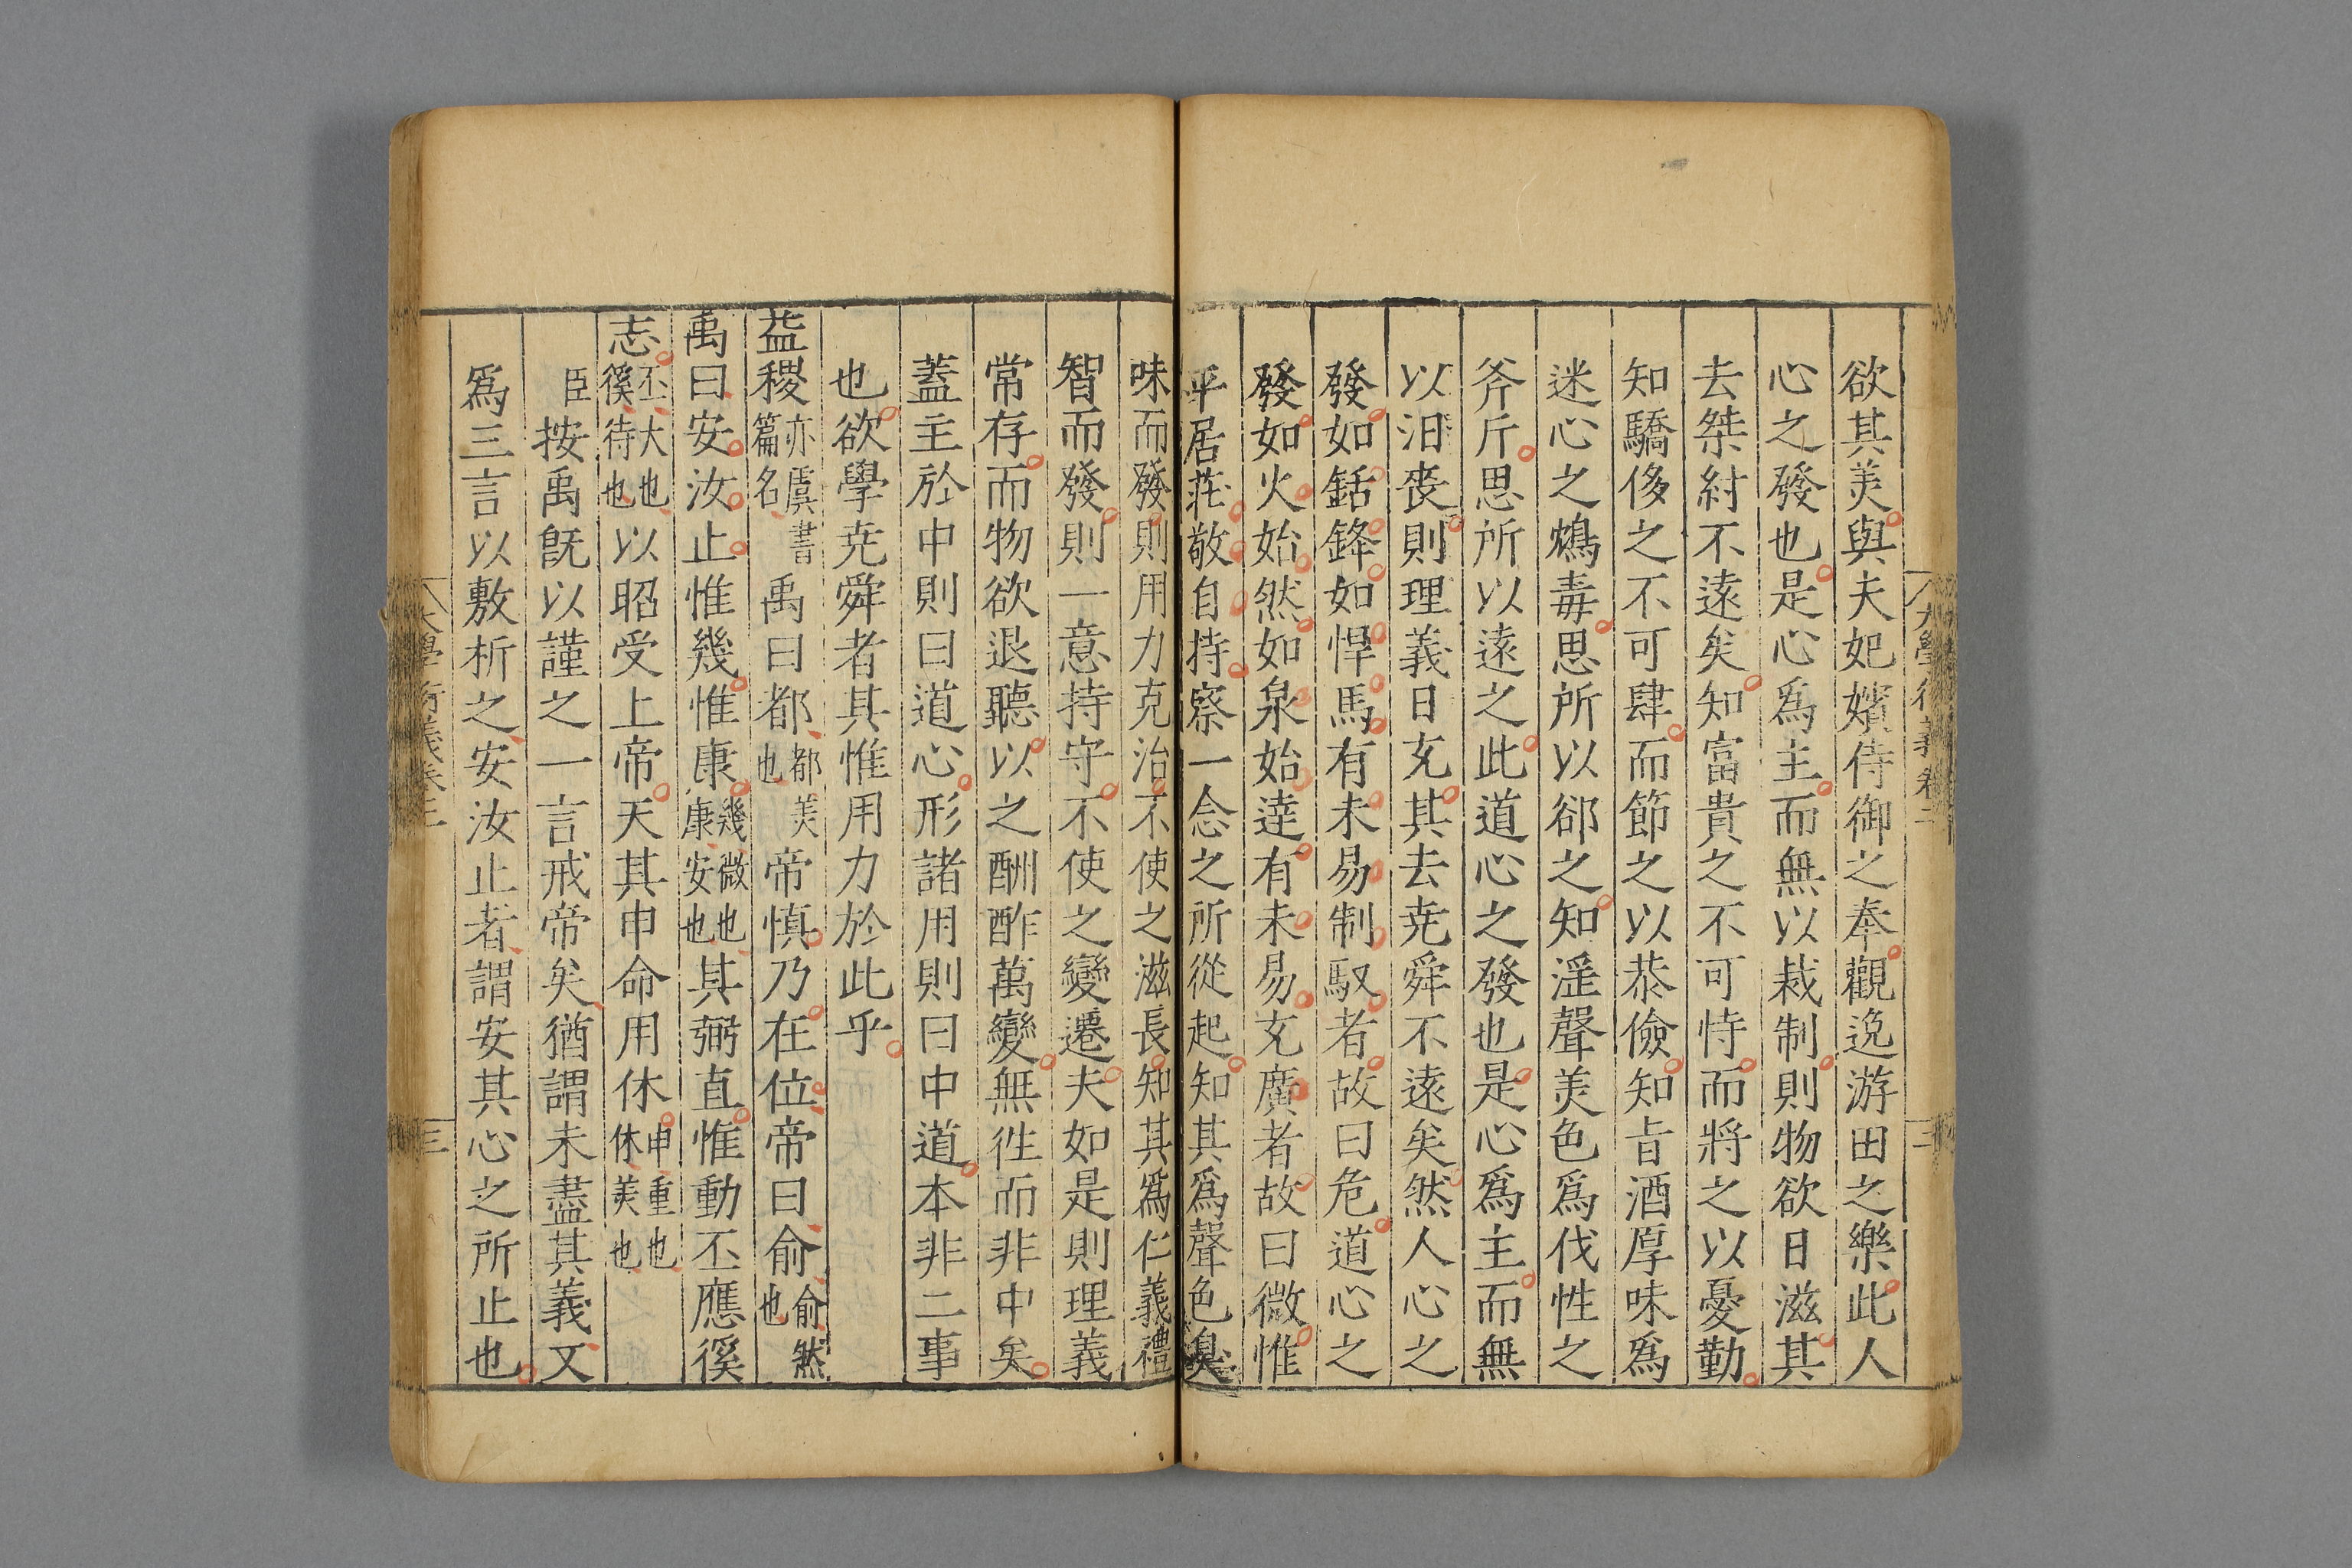 大學衍義卷二
二
欲其美與夫妃嬪侍御之奉觀逸游田之樂此人
心之發也是心爲主而無以裁制則物欲日滋其
去桀紂不遠矣知富貴之不可恃而將之以憂勤
知驕侈之不可肆而節之以恭儉知旨酒厚味爲
迷心之鴆毒思所以郤之知滛聲美色爲伐性之
斧斤思所以遠之此道心之發也是心爲主而無
以汨喪則理義日充其去尭舜不遠矣然人心之
發如銛鋒如悍馬有未易制馭者故曰危道心之
發如火始然如泉始達有未易充廣者故曰微惟
平居莊敬自持察一念之所從起知其爲聲色臭
味而發則用力克治不使之滋長知其爲仁義禮
智而發則一意持守不使之變遷夫如是則理義
常存而物欲退聽以之酬酢萬變無徃而非中矣
蓋主於中則曰道心形諸用則曰中道本非二事
也欲學尭舜者其惟用力於此乎
益稷亦虞書篇名禹曰都都美也帝慎乃在位帝曰俞俞然也
禹曰安汝止惟幾惟康幾微也康安也其弼直惟動丕應徯
志丕大也徯待也以昭受上帝天其申命用休申重也休美也
臣按禹旣以謹之一言戒帝矣猶謂未盡其義又
爲三言以敷析之安汝止者謂安其心之所止也
大學衍義卷二
三